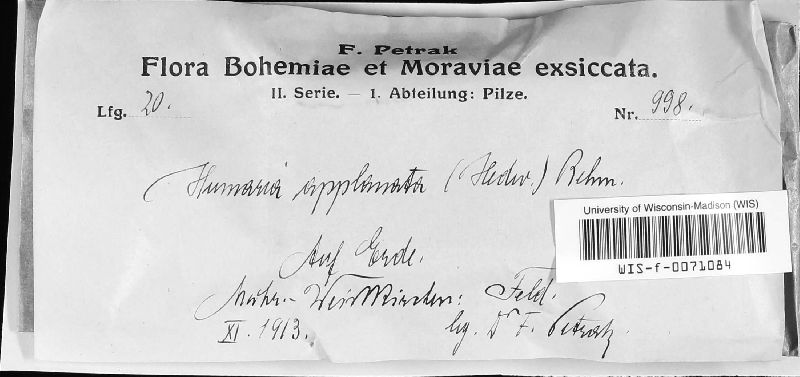 F. Petrak
Flora Bohemiae et Moraviae exsiccata.
II. Serie. — 1. Abteilung: Pilze.
Lfg. 20.
Nr. 998.
Humaria applanata (Hedw.) Rehm.
University of Wisconsin-Madison (WIS)
WIS-f-0071084
Auf Erde.
Mähr.-Weisskirchen: Feld.
XI. 1913.
lg. Dr F. Petrak.